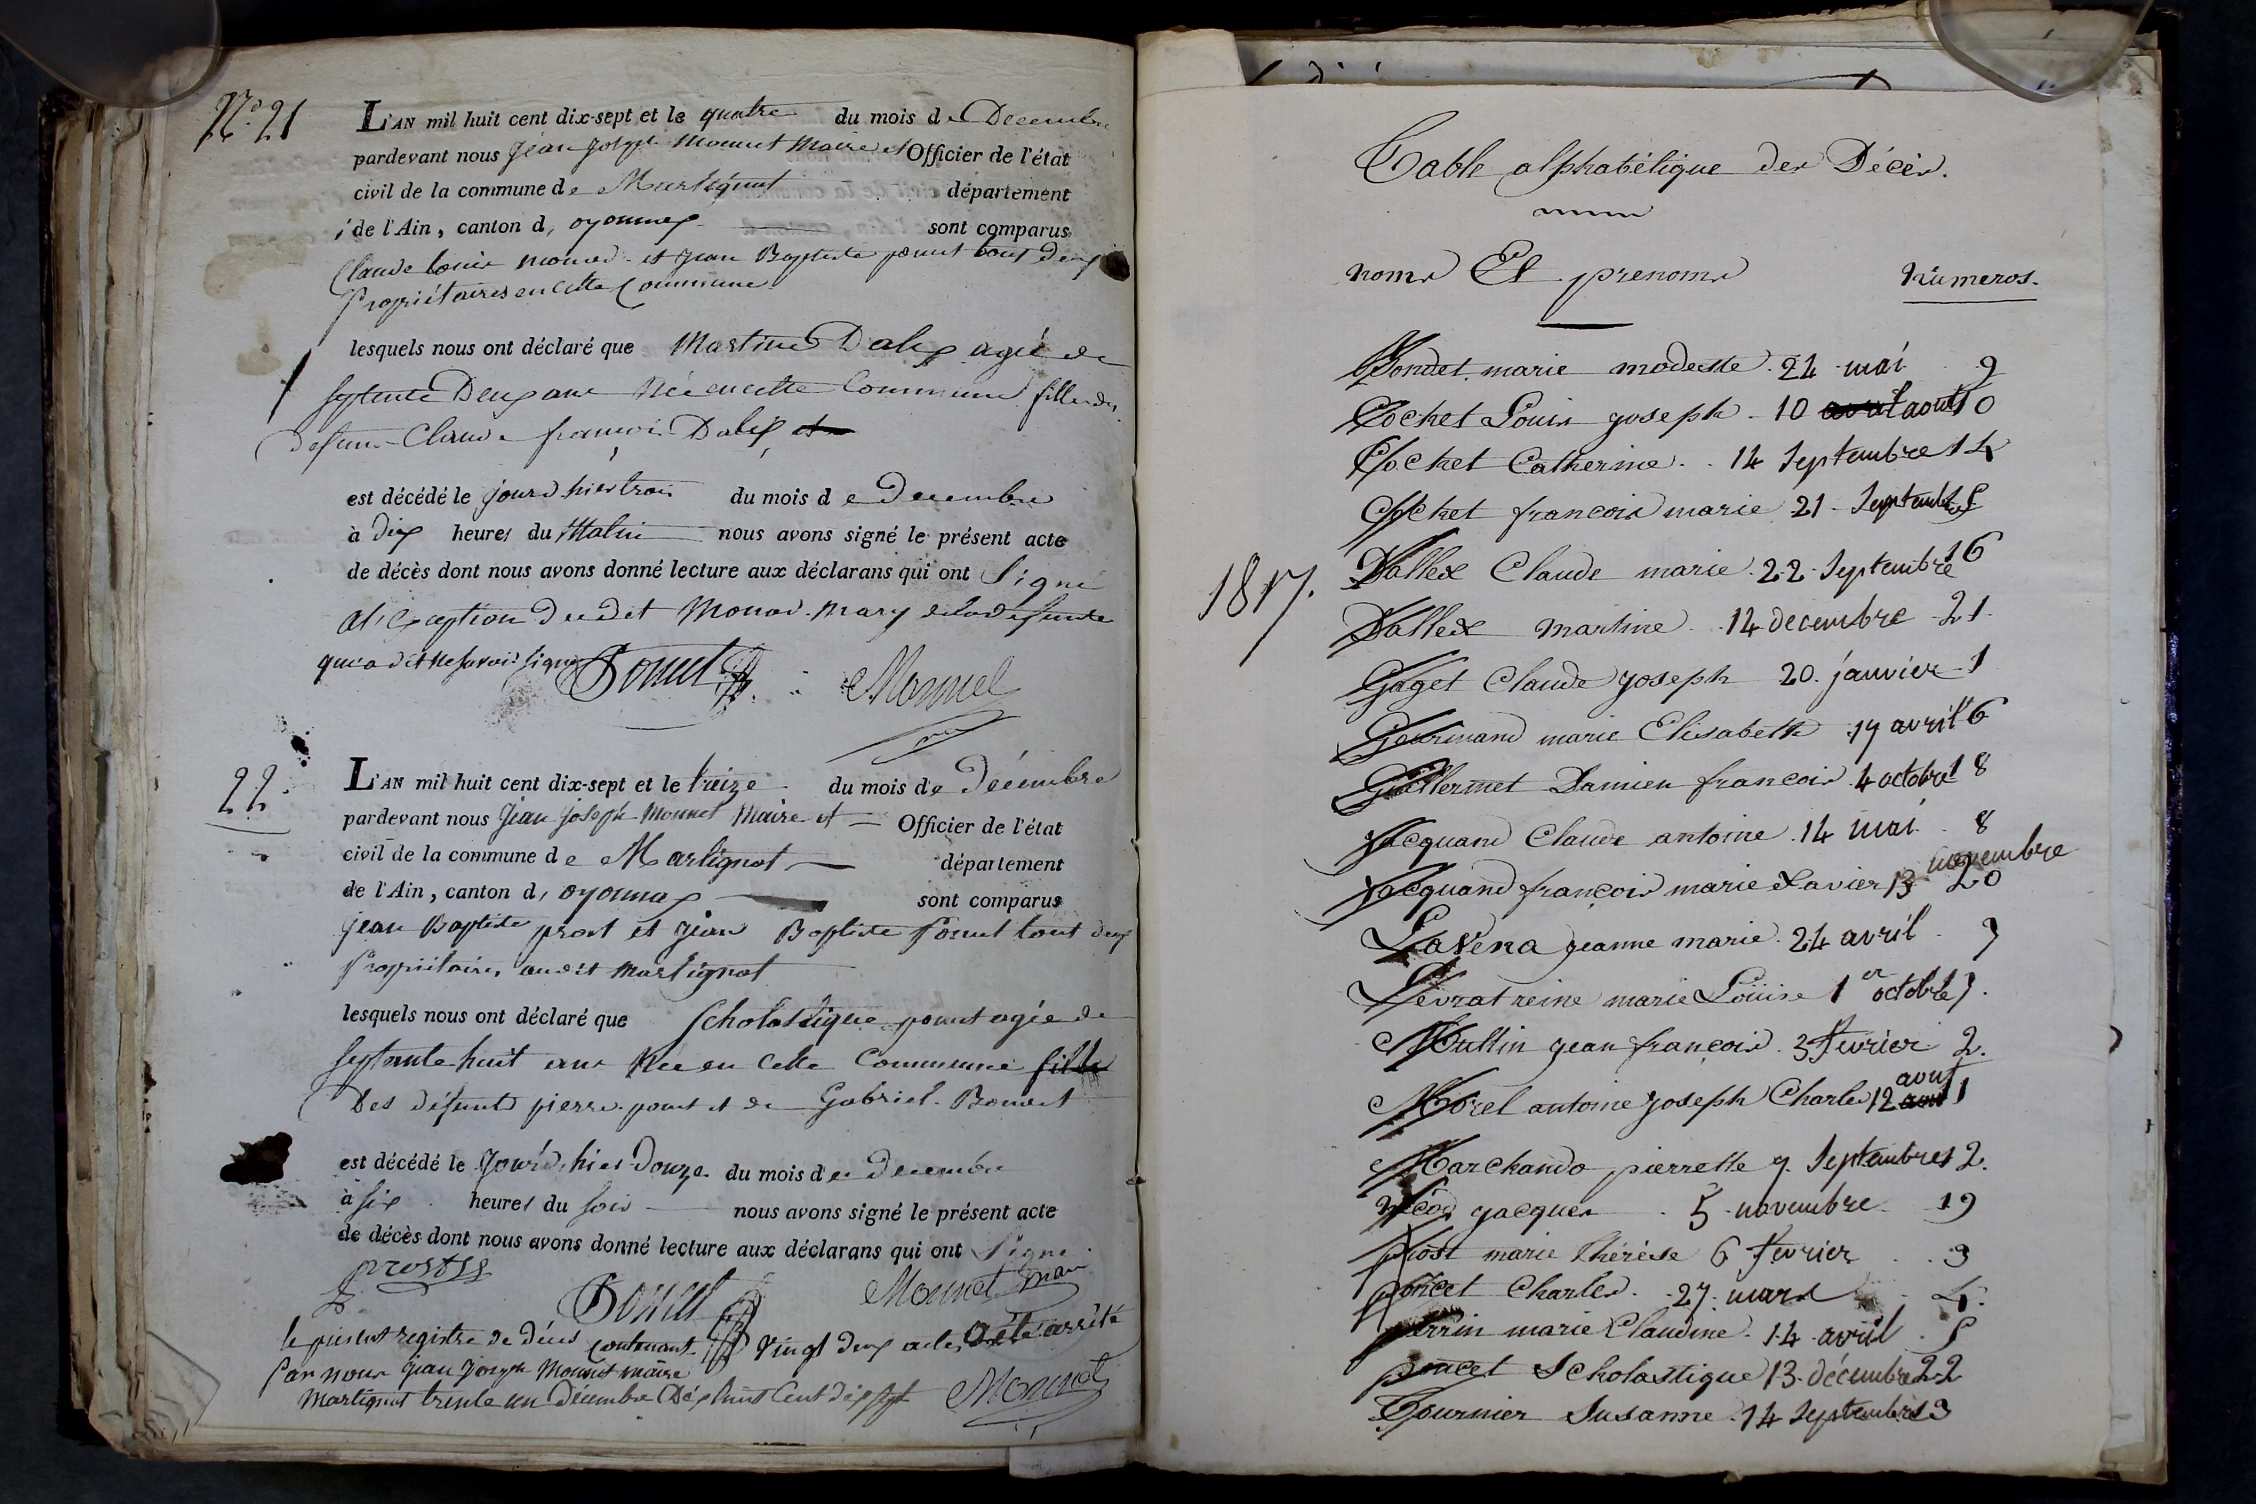 No 21
L'AN mil huit cent dix-sept et le quatre du mois de Decembre
pardevant nous jean joseph Monnet Maire et Officier de l'état
civil de la commune de Martignat département
de l'Ain, canton d, oyonnax sont comparus
Claude Louis monod et jean Baptiste poncet tous deux
Propriétaires en cette Commune
lesquels nous ont déclaré que Martine Dalex agée de
septente Deux ans Née en cette Commune fille du
defunt Claude françois Dalex et
est décédé le jourd hier trois du mois de Decembre
à dix heures du Matin nous avons signé le présent acte
de décès dont nous avons donné lecture aux déclarans qui ont Signé
al'exception Dudit Monod mary de la defunte
qui a dit ne savoir signer Poncet Monnet
22
L'AN mil huit cent dix-sept et le treize du mois de Décembre
pardevant nous jean joseph Monnet Maire et Officier de l'état
civil de la commune de Martignat département
de l'Ain, canton d, oyonnax sont comparus
jean Baptiste prost et jean Baptiste Poncet tout deux
Propriétaires audit Martignat
lesquels nous ont déclaré que Scholastique poncet agée de
septante huit ans Née en Cette Commune fille
Des défunts pierre poncet et de Gabriel
est décédé le Jourd, hier Douze du mois de Decembre
à six heures du soir nous avons signé le présent acte
de décès dont nous avons donné lecture aux déclarans qui ont Signé
prost
Poncet Monnet maire
le présent registre de décès contenant vingt deux actes a été arrété
Par nous jean joseph Monnet maire
Martignat trente un Décembre Dix huit Cent dix sept Monnet
Table alphabétique des Décès.
noms Et prenoms Numeros.
Bondet marie modeste 24 mai 9
Cochet Louis joseph 10 avril aout 10
Cochet Catherine 14 Septembre 14
Cochet francois marie 21 Septembre 15
1817.
Dallex Claude marie 22 Septembre 16
Dallex martine 14 decembre 21
Gaget Claude joseph 20 janvier 1
Gourmand marie Elisabeth 17 avril 6
Guillermet Damien francois 4 octobre 18
Jacquand Claude antoine 14 mai 8
Jacquand françois marie Xavier 13 novembre 20
Lavena jeanne marie 24 avril 7
Levrat reine marie Loüise 1er octobre 17
Mullin jean françois 3 fevrier 2
Morel antoine joseph Charles 12 aout 11
Marchando pierrette 9 Septembre 12
Nicod jacques 5 novembre 19
prost marie thérèse 6 fevrier 3
poncet Charles 27 mars 4
perrin marie Claudine 14 avril 5
poncet Scholastique 13 décembre 22
Tournier Susanne 14 Septembre 13